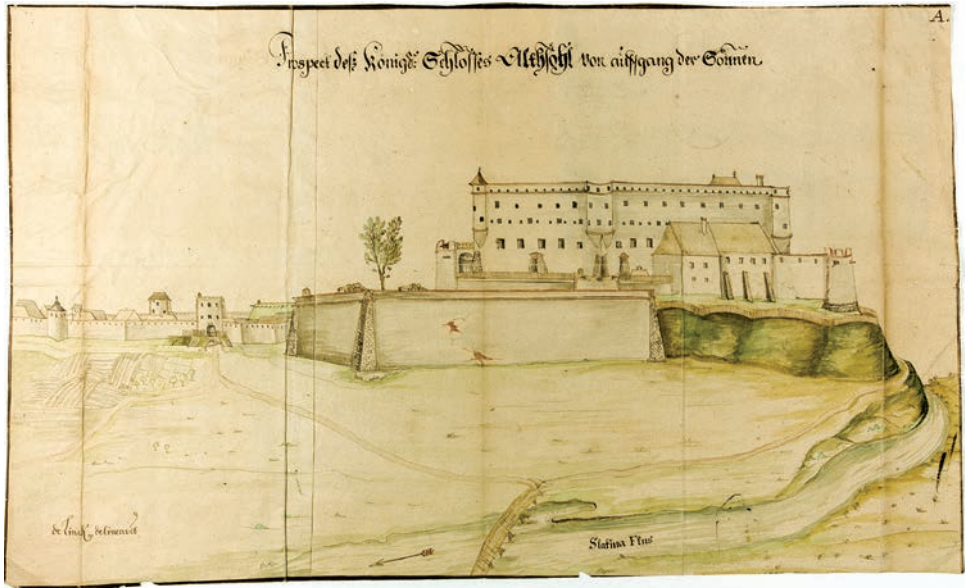 A.
Prospect deß Königs: Schlosses Althsohl von auffgang der Sonnen
de lineavit
Slatina Flus